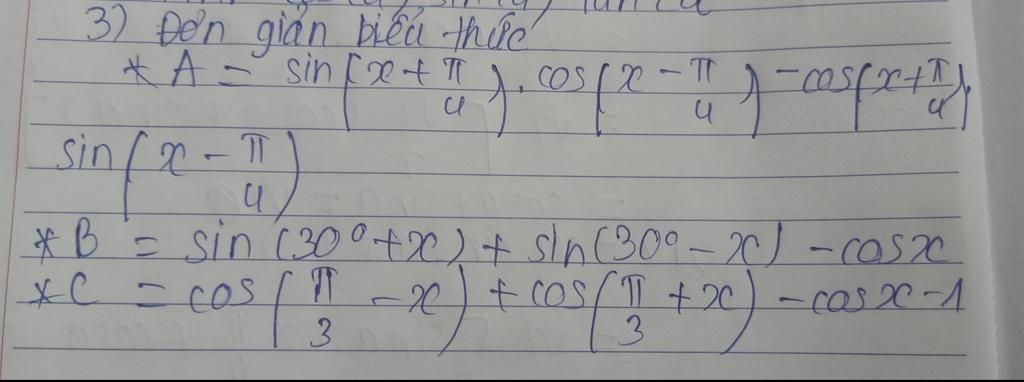 3) Đơn giản biểu thức
* A = sin(x + π/4) . cos(x - π/4) - cos(x + π/4).
sin(x - π/4)
* B = sin(30° + x) + sin(30° - x) - cosx
* C = cos(π/3 - x) + cos(π/3 + x) - cosx - 1